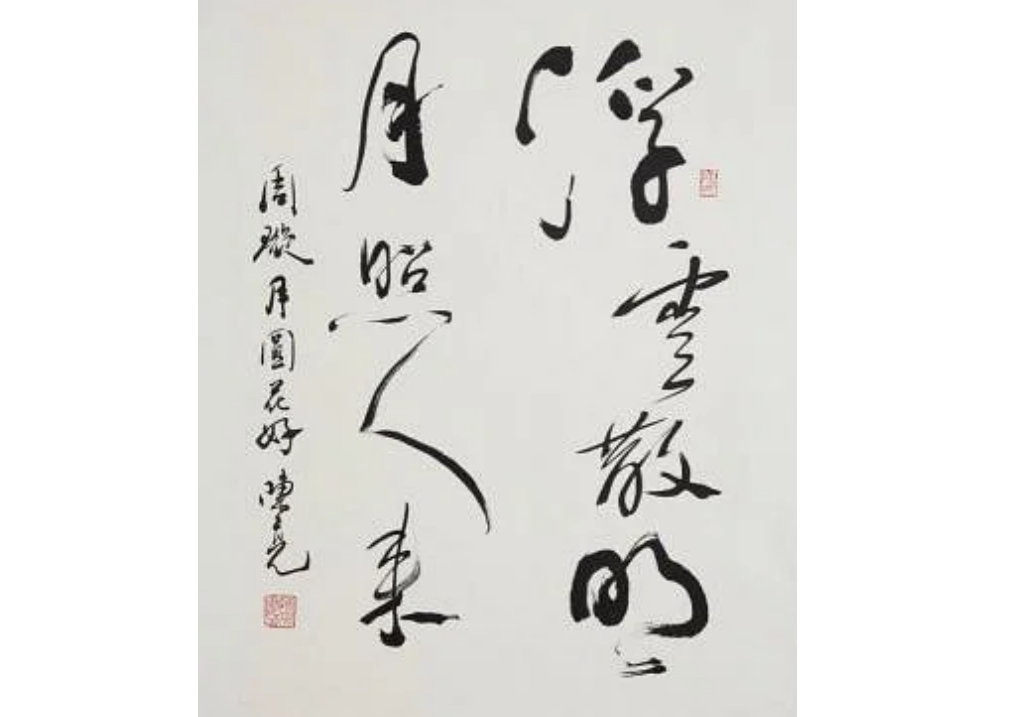 浮雲散明
月照人来
周璇月圓花好陳